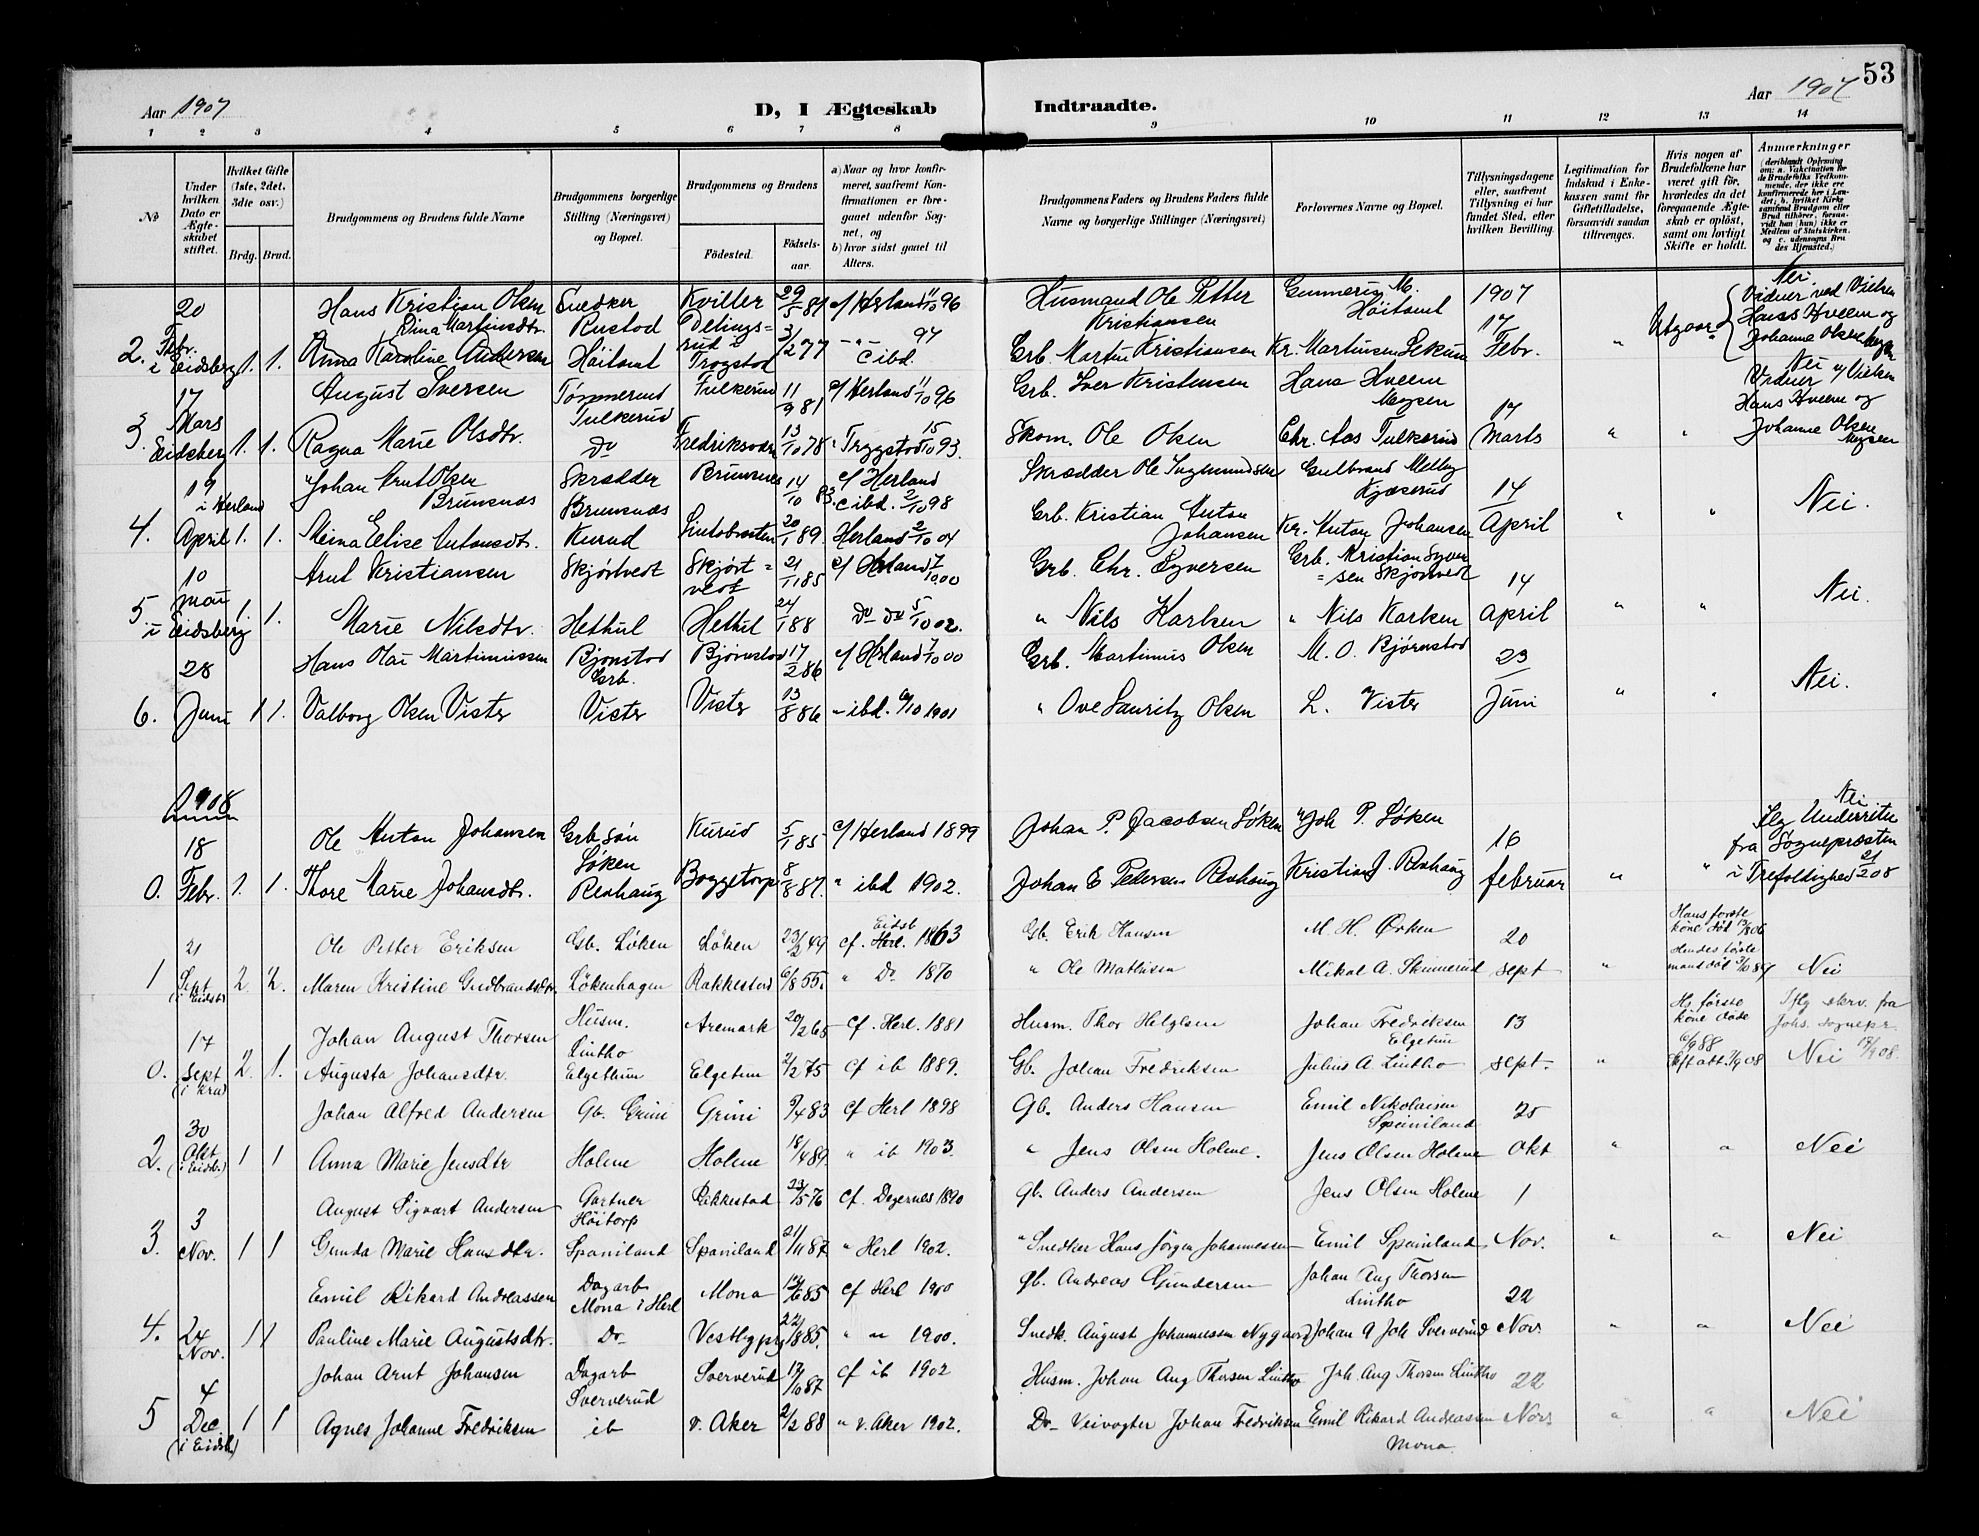 53
Aar 1907
D, I Ægteskab Indtraadte.
Aar 1907
1 2 3 4 5 6 7 8 9 10 11 12 13 14
No
Under hvilken Dato er Ægteskabet stiftet.
Hvilket Gifte (1ste, 2det, 3die osv.)
Brdg. Brud.
Brudgommens og Brudens fulde Navne
Brudgommens borgerlige Stilling (Næringsvei) og Bopæl.
Brudgommens og Brudens
Födested.
Födselsaar.
a) Naar og hvor konfirmeret, saafremt Konfirmationen er foregaaet udenfor Sognet, og
b) hvor sidst gaaet til Alters.
Brudgommens Faders og Brudens Faders fulde Navne og borgerlige Stillinger (Næringsvei)
Forlovernes Navne og Bopæl.
Tillysningsdagene eller, saafremt Tillysning ei har fundet Sted, efter hvilken Bevilling.
Legitimation for Indskud i Enkekassen samt for Giftetilladelse, forsaavidt saadan tiltrænges.
Hvis nogen af Brudefolkene har været gift för, hvorledes da det foregaaende Ægteskab er oplöst, samt om lovligt Skifte er holdt.
Anmærkninger
20 Hans Kristian Olsen Snedker Kviller 29/5 81 c/ Herland 11/10 96 Husmand Ole Petter Kristiansen Gunnerius M. Höitomt 1907 Nei
Dina Martinsdtr. Rustad
2. Febr. i Eidsberg 1. 1. Anna Karoline Andersen Höitomt Trogstad 3/2 77 97 c ibd. Grb. Martin Kristiansen Kr. Martinsen Sekum 17 Febr. " Utgaar Vidner ved Vielsen Hans Hveem og Johanne Olsen Mysen
17 August Iversen Tømmermd Tulkerud Fulkerud 11/9 81 c/ Herland 11/10 96 Grb. Iver Kristensen Hans Hveem Mysen 17 Nei Vidner v/ Vielsen
3. Mars Eidsberg 1. 1. Ragna Marie Olsdtr. do Fredriksværn 13/10 78 " Trygstad 15/10 93. Skom. Ole Olsen Chr. Aas Tulkerud Marts " " Hans Hveem og Johanne Olsen Mysen
19 i Herland Johan Arnt Olsen Brunsnæs Skrædder Brunsnes 14/10 83. c/ Herland c ibd. 2/10 98 Skrædder Ole Ingemundsen Gulbrand Melby Kjæserud 14
4. April 1. 1. Meina Elise Antonsdtr. Kurud 20/1 89. Herland 2/10 04 Grb. Kristian Anton Johansen Kr. Anton Johansen April " " Nei.
10 Arnt Kristiansen Skjørtvedt Skjørtvedt 21/1 85 c/ Herland 7/10 00 Grb. Chr. Syversen Grb. Kristian Syversen Skjörtvedt 14
5. mai i Eidsberg 1. 1. Marie Nilsdtr. Hethul Hethul 24/1 88 do do 5/10 02. " Nils Karlsen " Nils Karlsen April " " Nei.
28 Hans Olai Martinussen Bjonstad Grb. Bjørnstad 17/2 86 c/ Herland 7/10 00 Grb. Martinus Olsen M. O. Bjørnstad 23
6. Juni 1 1. Valborg Olsen Vister Vister Vister 13/8 86 " ibd. 6/10 1901 " Ove Lauritz Olsen L. Vister Juni " " Nei.
1908
18 Ole Anton Johansen Grb.søn Løken Kurud 5/1 85 c/ Herland 1899 Johan P. Jacobsen Løken " Joh P. Løken 16 Nei
0. Febr. 1. 1. Thore Marie Johansdtr. Revhaug Boggetorp 8/8 87. " ibd 1902. Johan E Pedersen Revhaug Kristian J. Revhaug februar " " Ifg Underretn fra Sognepræsten i Trefoldighed 21/2 08
21 Ole Petter Eriksen Gb. Löken Löken 23/2 49 cf. Eidsb Herl. 1863 Gb. Erik Hansen M. H. Ørken 20 Hans første kone död 12/8 06
1 Sept (i Eidsb) 2. 2. Maren Kristine Gudbrandsdtr. Løkenhagen Rakkestad 6/8 55. " Do 1870 " Ole Mathisen Mikal A. Skinnerud sept " Hendes første mand död 3/10 89 Nei
17 Johan August Thorsen Husm. Lintho Aremark 20/2 65 cf. Herl. 1881 Husm. Thor Helgesen Johan Fredriksen Elgetun 13 Hs første kone döde Iflg skriv. fra Johs. sognepr.
0. sept (i Kra) 2. 1. Augusta Johansdtr. Elgethun Elgetun 2/2 75 cf ib 1889. Gb. Johan Fredriksen Julius A. Lintho sept. " 6/9 88 Nei 19/9 08.
30 Johan Alfred Andersen Gb. Grini Grini 5/4 83 cf Herl 1898 Gb. Anders Hansen Emil Nikolaisen Spæniland 25
2. Okt (i Eidsb.) 1 1 Anna Marie Jensdtr Holene Holene 18/4 89. " ib 1903. " Jens Olsen Holene. Jens Olsen Holene Okt " " Nei
3 August Sigvart Andersen Gartner Höitorp Rakkestad 23/5 76 cf. Degernes 1890 Gb. Anders Andersen Jens Olsen Holene 1
3. Nov. 1 1 Gunda Marie Hansdtr. Spæniland Spæniland 21/11 87 " Herl 1902. " Snedker Hans Jörgen Johannesen Emil Spæniland Nov. " " Nei
Emil Rikard Andreassen Dagarb Mona i Herl Mona 85 cf Herl 1900 Gb. Andreas Gundersen Johan Aug Thorsen Lintho 22
4. 24 Nov. 1 1 Pauline Marie Augustsdtr. Do Vestbygpr 22/1 885. " " 1900. Snedk. August Johannessen Nygaard Johan A Joh Sververud Nov. " " Nei
4 Johan Arnt Johansen Dagarb Sververud Sververud 13/10 87 cf ib 1902 Husm. Johan Aug Thorsen Lintho Joh Aug Thorsen Lintho 22
5 Dec (i Eidsb.) 1 1 Agnes Johanne Fredriksen ib v. Aker 2/2 88 " v. Aker 1902. Do Veivogter Johan Fredriksen Emil Rikard Andreassen Mona. Nov " " Nei